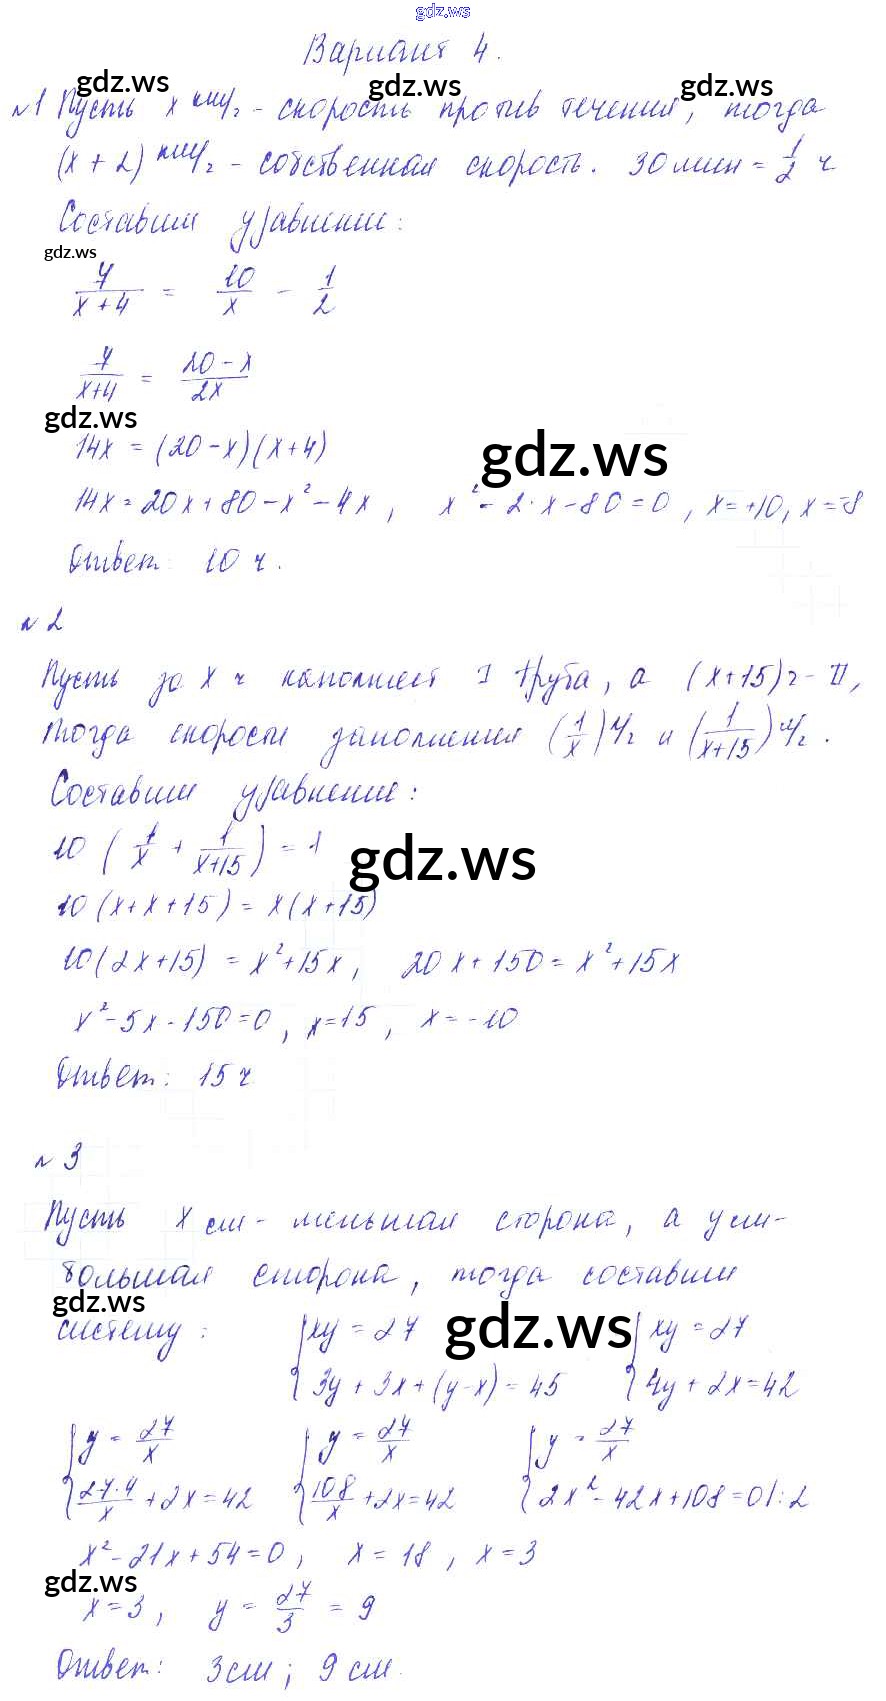 gdz.ws
Вариант 4.
gdz.ws gdz.ws gdz.ws
№1 Пусть x км/ч - скорость против течения, тогда
(x + 2) км/ч - собственная скорость. 30 мин = 1/2 ч
Составим уравнение:
gdz.ws
7/(x+4) = 10/x - 1/2
7/(x+4) = (20-x)/2x
gdz.ws
14x = (20-x)(x+4)
gdz.ws
14x = 20x + 80 - x² - 4x, x² - 2·x - 80 = 0, x = +10, x = -8
Ответ: 10 ч.
№2
Пусть за x ч наполняет I труба, а (x+15) ч - II,
тогда скорость заполнения (1/x) ч/ч и (1/(x+15)) ч/ч.
Составим уравнение:
10 (1/x + 1/(x+15)) = 1
gdz.ws
10(x+x+15) = x(x+15)
10(2x+15) = x²+15x, 20x+150 = x²+15x
x²-5x-150=0, x=15, x=-10
Ответ: 15 ч
№3
Пусть x см - меньшая сторона, а y см -
большая сторона, тогда составим
gdz.ws
систему: { xy = 27 { xy = 27
gdz.ws
3y + 3x + (y-x) = 45 4y + 2x = 42
{ y = 27/x { y = 27/x { y = 27/x
27·4/x + 2x = 42 108/x + 2x = 42 2x² - 42x + 108 = 0 |:2
x² - 21x + 54 = 0, x = 18, x = 3
gdz.ws
x = 3, y = 27/3 = 9
Ответ: 3 см; 9 см.